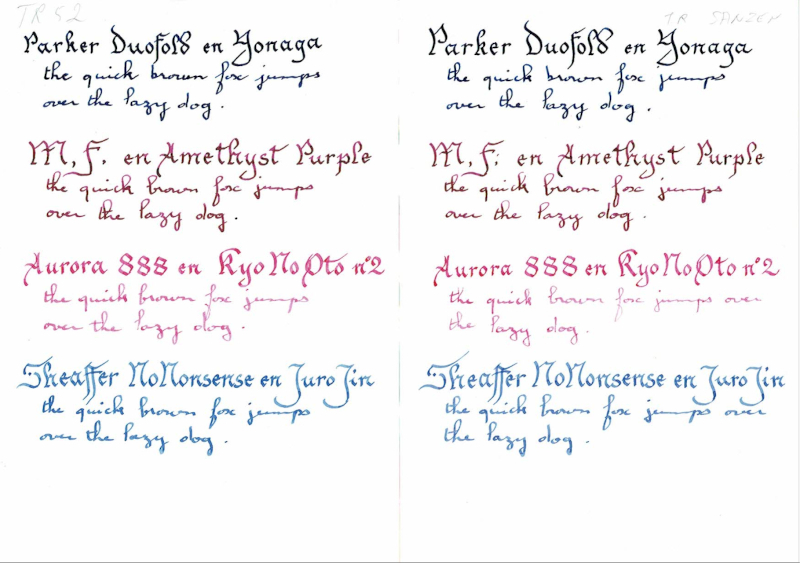 TR 52
Parker Duofold en Yonaga
the quick brown fox jumps
over the lazy dog.
M, F. en Amethyst Purple
the quick brown fox jumps
over the lazy dog.
Aurora 888 en Kyo No Oto nº2
the quick brown fox jumps
over the lazy dog.
Sheaffer NoNonsense en Juro Jin
the quick brown fox jumps
over the lazy dog.
TR SANZEN
Parker Duofold en Yonaga
the quick brown fox jumps
over the lazy dog.
M, F. en Amethyst Purple
the quick brown fox jumps
over the lazy dog.
Aurora 888 en Kyo No Oto nº2
the quick brown fox jumps over
the lazy dog.
Sheaffer NoNonsense en Juro Jin
the quick brown fox jumps over
the lazy dog.